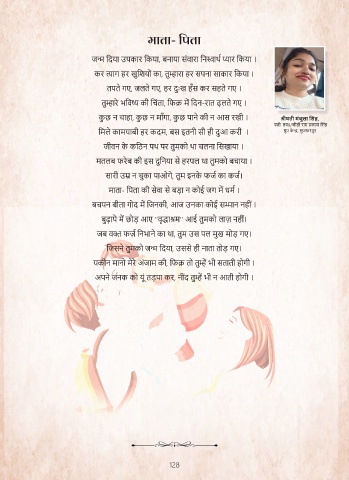 माता- पिता
जन्म दिया उपकार किया, बनाया संवारा निश्वार्थ प्यार किया ।
कर त्याग हर खुशियों का, तुम्हारा हर सपना साकार किया ।
तपते गए, जलते गए, हर दुःख हँस कर सहते गए ।
तुम्हारे भविष्य की चिंता, फिक्र में दिन-रात ढलते गए ।
कुछ न चाहा, कुछ न माँगा, कुछ पाने की न आस रखी ।
मिले कामयाबी हर कदम, बस इतनी सी ही दुआ करी ।
जीवन के कठिन पथ पर तुमको था चलना सिखाया ।
मतलब फरेब की इस दुनिया से हरपल था तुमको बचाया ।
सारी उम्र न चुका पाओगे, तुम इनके फर्ज का कर्ज।
माता- पिता की सेवा से बड़ा न कोई जग में धर्म ।
बचपन बीता गोद में जिनकी, आज उनका कोई सम्मान नहीं ।
बुढ़ापे में छोड़ आए "वृद्धाश्रम" आई तुमको लाज़ नहीं।
जब वक्त फर्ज़ निभाने का था, तुम उस पल मुख मोड़ गए।
जिसने तुमको जन्म दिया, उससे ही नाता तोड़ गए।
यकीन मानो मेरे अंजाम की, फिक्र तो तुम्हें भी सताती होगी ।
अपने जंनक को यूं तड़पा कर, नींद तुम्हें भी न आती होगी ।
श्रीमती मंजुला सिंह,
128